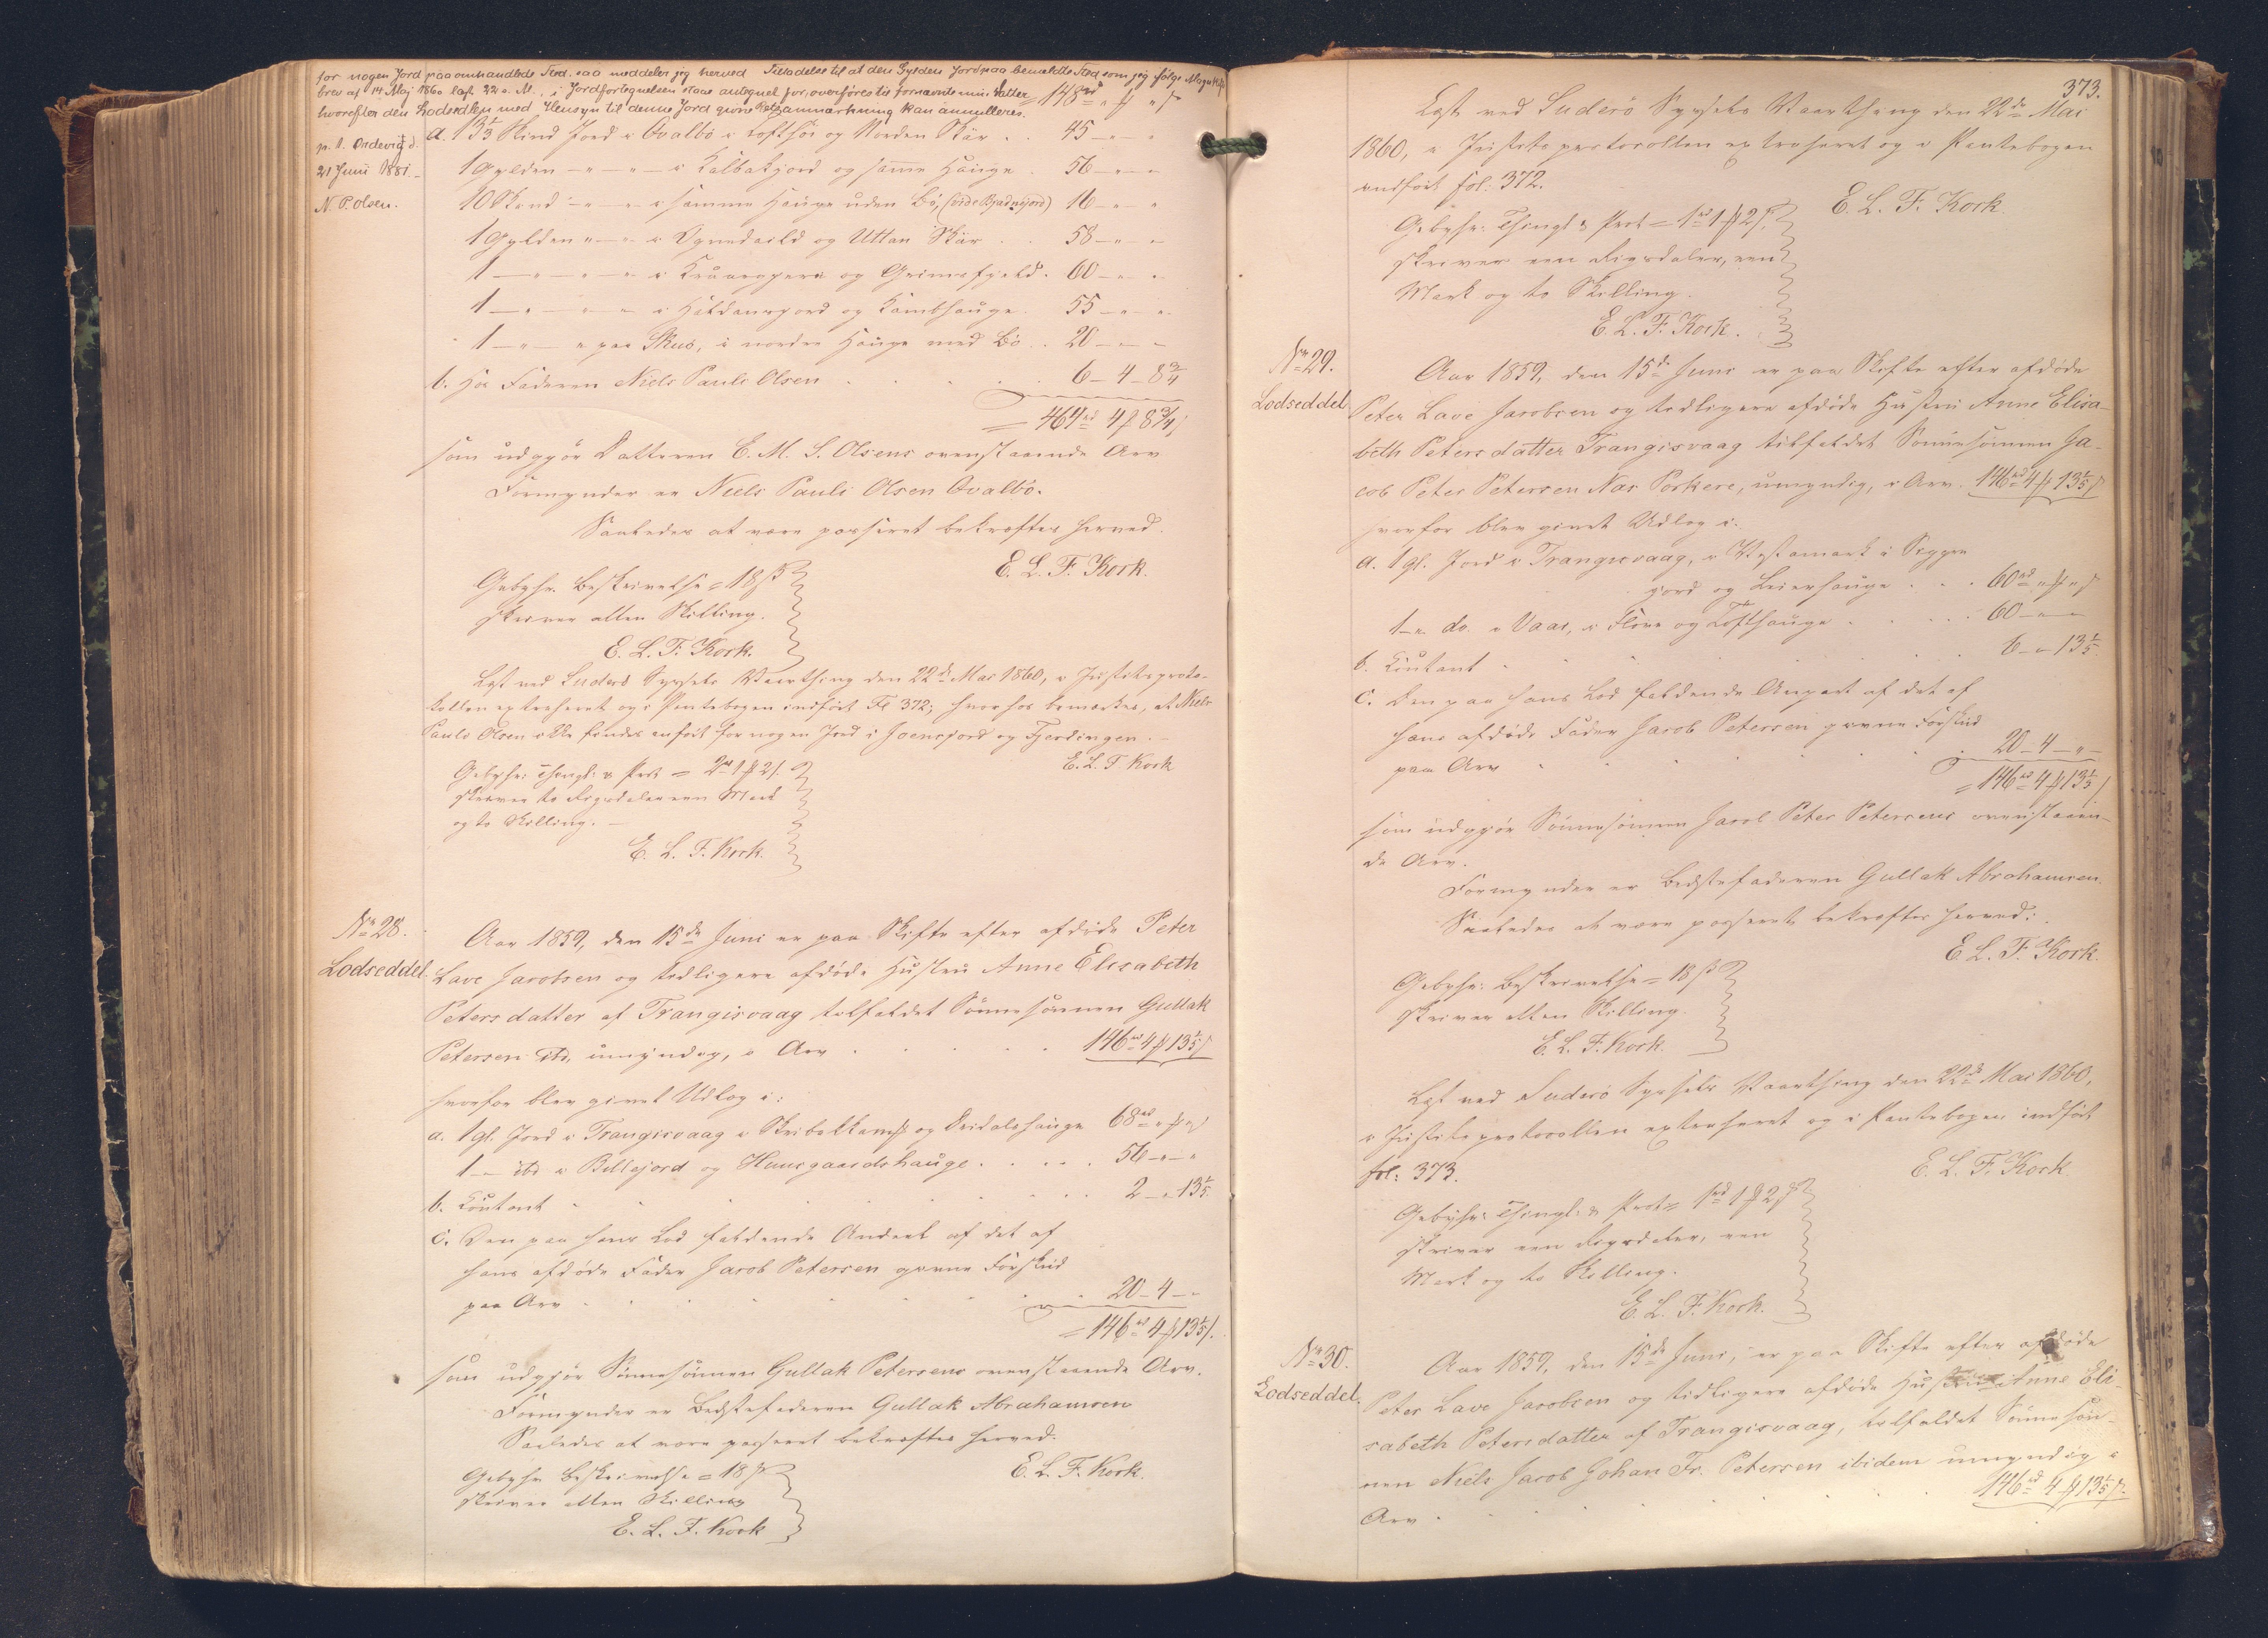 for nogen Jord paa omhandlede Sted, saa meddeler jeg herved Tilladelse til at den Gylden Jord paa bemeldte Sted som jeg ifølge Mage
brev af 14 Maj 1860 læst 22 s. M., i Jordfortegnelsen staae antegnet for, overføres til fornævnte min Datter
hvorefter den Lodsedlen med Hensyn til denne Jord givne Retsanmærkning kan annulleres.
= 148 rd " ₰ " ß
p. t. Ordevig d.
21 Juni 1881.
N. P. Olsen.
a. 13 1/3 Skind Jord i Qvalbö i Lofthöi og Norden Skär . . 45 - " - "
1 Gylden - " - " - i Kalbakjord og samme Hauge . 56 - " - "
10 Skind - " - " - i samme Hauge uden Bö, (vide Bjadnijord) 16 - " - "
1 Gylden " - " - i og Uttan Skär . . 58 - " - "
1 - " - " - " - i og Grimsfjeld . 60 - " - "
1 - " - " - " - i Haldansjord og Kambhauge . 55 - " - "
1 - " - " paa Skuö, i nordre Hauge med Bö . . 20 - " - "
b. Hos Faderen Niels Pauli Olsen . . . . . 6 - 4 - 8 3/4
= 464 rd 4 ₰ 8 3/4 ß
som udgjör Datteren E. M. S. Olsens ovenstaaende Arv
Formynder er Niels Pauli Olsen Qvalbö.
Saaledes at være passeret bekræftes herved.
E. L. F. Kork.
Gebyhr. Beskrivelse = 18 ß
skriver atten Skilling.
E. L. F. Kork.
Læst ved Suderö Syssels Vaarthing den 22de Mai 1860, i Justitsproto-
kollen extraheret og i Pantebogen indfört Fol 372; hvorhos bemærkes, at Niels
Pauli Olsen ikke findes anfört for nogen Jord i Joensjord og Fjerdingen. -
E. L. F. Kork
Gebyhr: Thingl: & Prot = 2 rd 1 ₰ 2 ß.
skriver to Rigsdaler een Mark
og to Skilling. -
E. L. F. Kork.
No 28.
Lodseddel.
Aar 1859, den 15de Juni er paa Skifte efter afdöde Peter
Lave Jacobsen og tidligere afdöde Hustru Anne Elisabeth
Petersdatter af Trangisvaag tilfaldet Sönnesönnen Gullak
Petersen ibd, umyndig, i Arv . . . . 146 rd 4 ₰ 13 1/5 ß
hvorfor blev givet Udlog i:
a. 1 gl. Jord i Trangisvaag i og 68 rd " ₰ " ß
1 - " ibd i Billejord og Huusgaardshauge . . . . . 56 - " - "
b. Contant . . . . . . . 2 - " - 13 1/5
c. Den paa hans Lod faldende Andeel af det af
hans afdöde Fader Jacob Petersen givne Forskud
paa Arv . . . . . . . . 20 - 4 - "
= 146 rd 4 ₰ 13 1/5 ß.
som udgjör Sönnesönnen Gullak Petersens ovenstaaende Arv.
Formynder er Bedstefaderen Gullak Abrahamsen
Saaledes at være passeret bekræftes herved.
E. L. F. Kork.
Gebyhr Beskrivelse = 18 ß
skriver atten Skilling
E. L. F. Kork
373.
Læst ved Suderö Syssels Vaarthing den 22de Mai
1860, i Justitsprotocollen extraheret og i Pantebogen
indfört fol: 372.
E. L. F. Kork.
Gebyhr: Thingl & Prot = 1 rd 1 ₰ 2 ß.
skriver een Rigsdaler, een
Mark og to Skilling.
E. L. F. Kork.
No 29.
Lodseddel
Aar 1859, den 15de Juni er paa Skifte efter afdöde
Peter Lave Jacobsen og tidligere afdöde Hustru Anne Elisa-
beth Petersdatter Trangisvaag tilfaldet Sönnesönnen Ja-
cob Peter Petersen Næs Porkere, umyndig, i Arv. 146 rd 4 ₰ 13 1/5 ß
hvorfor blev givet Udlog i:
a. 1 gl. Jord i Trangisvaag, i Vestamark i
jord og Leirhauge . . . 60 rd " ₰ " ß
1 - " do. i Vaag, i og Lofthauge . . . . . 60 - " - "
b. Contant . . . . . . . 6 - " - 13 1/5.
c. Den paa hans Lod faldende Anpart af det af
hans afdöde Fader Jacob Petersen givne Forskud
paa Arv . . . . . . . 20 - 4 - " -
= 146 rd 4 ₰ 13 1/5 ß
som udgjör Sönnesönnen Jacob Peter Petersens ovenstaaen-
de Arv.
Formynder er Bedstefaderen Gullak Abrahamsen.
Saaledes at være passeret bekræftes herved:
E. L. F. Kork.
Gebyhr: Beskrivelse = 18 ß
skriver atten Skilling.
E. L. F. Kork.
Læst ved Suderö Syssels Vaarthing den 22de Mai 1860,
i Justitsprotocollen extraheret og i Pantebogen indfört
fol: 373.
E. L. F. Kork
Gebyhr: Thingl: & Prot = 1 rd 1 ₰ 2 ß
skriver een Rigsdaler, een
Mark og to Skilling.
E. L. F. Kork.
No 30.
Lodseddel.
Aar 1859, den 15de Juni, er paa Skifte efter afdöde
Peter Lave Jacobsen og tidligere afdöde Hustru Anne Eli-
sabeth Petersdatter af Trangisvaag, tilfaldet Sönnesön-
nen Niels Jacob Johan Fr. Petersen ibidem umyndig i
Arv . . . . . . . . 146 rd 4 ₰ 13 1/5 ß.